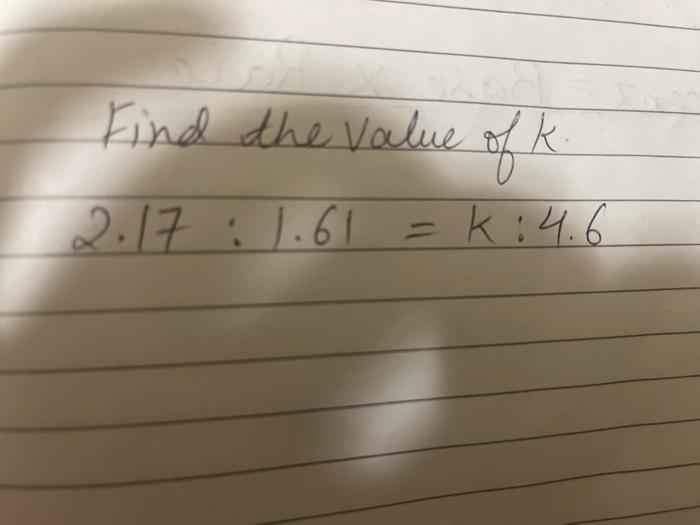 Find the value of k.
2.17 : 1.61 = k : 4.6